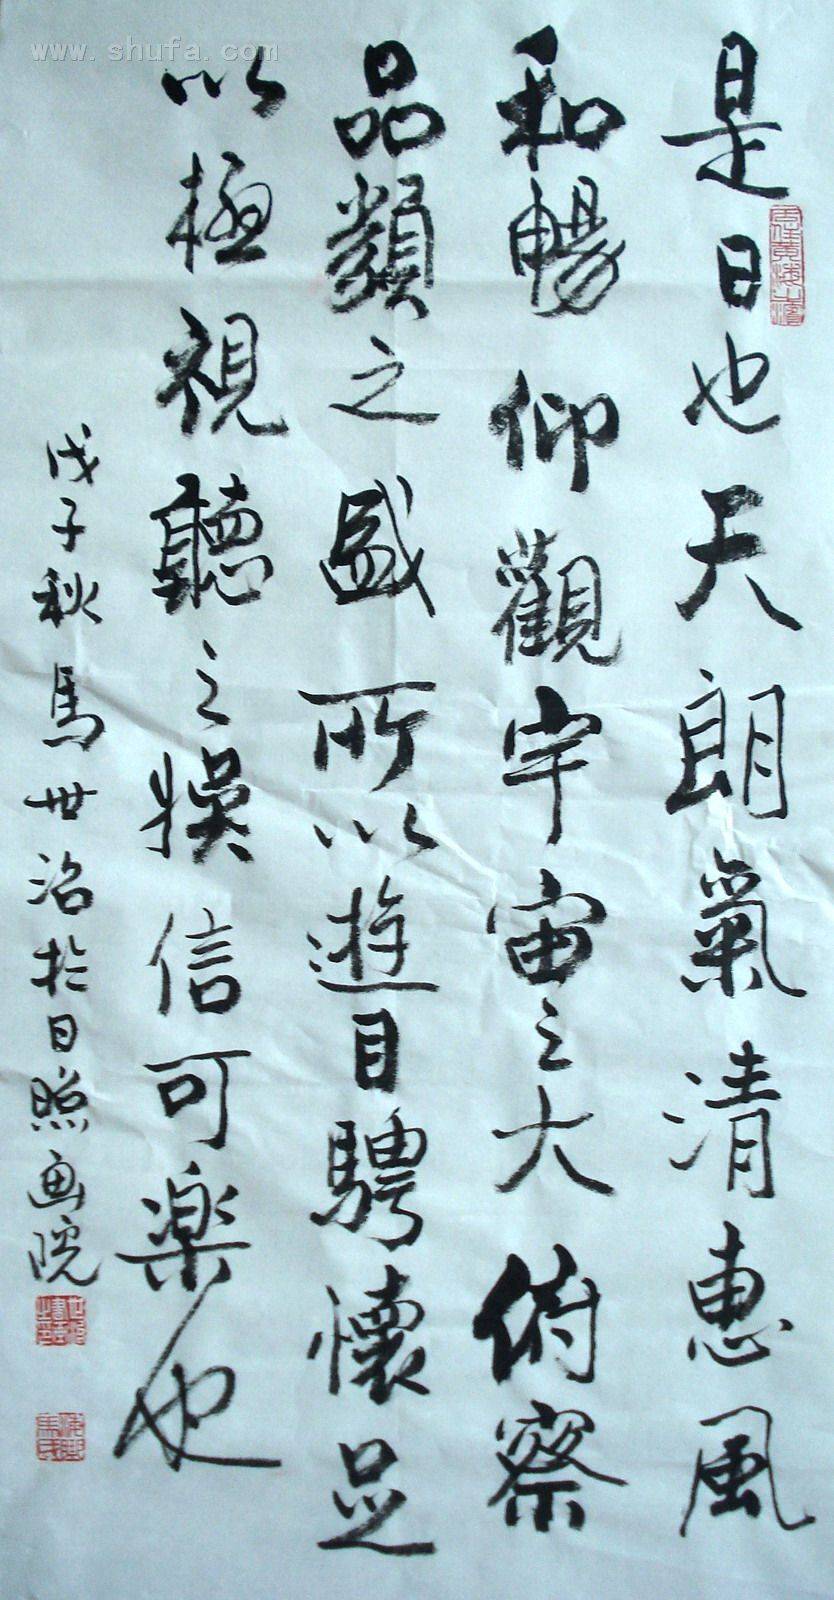 www.shufa.com
是日也天朗氣清惠風
和暢仰觀宇宙之大俯察
品類之盛所以遊目騁懷足
以極視聽之娛信可楽也
戊子秋馬世治於日照画院